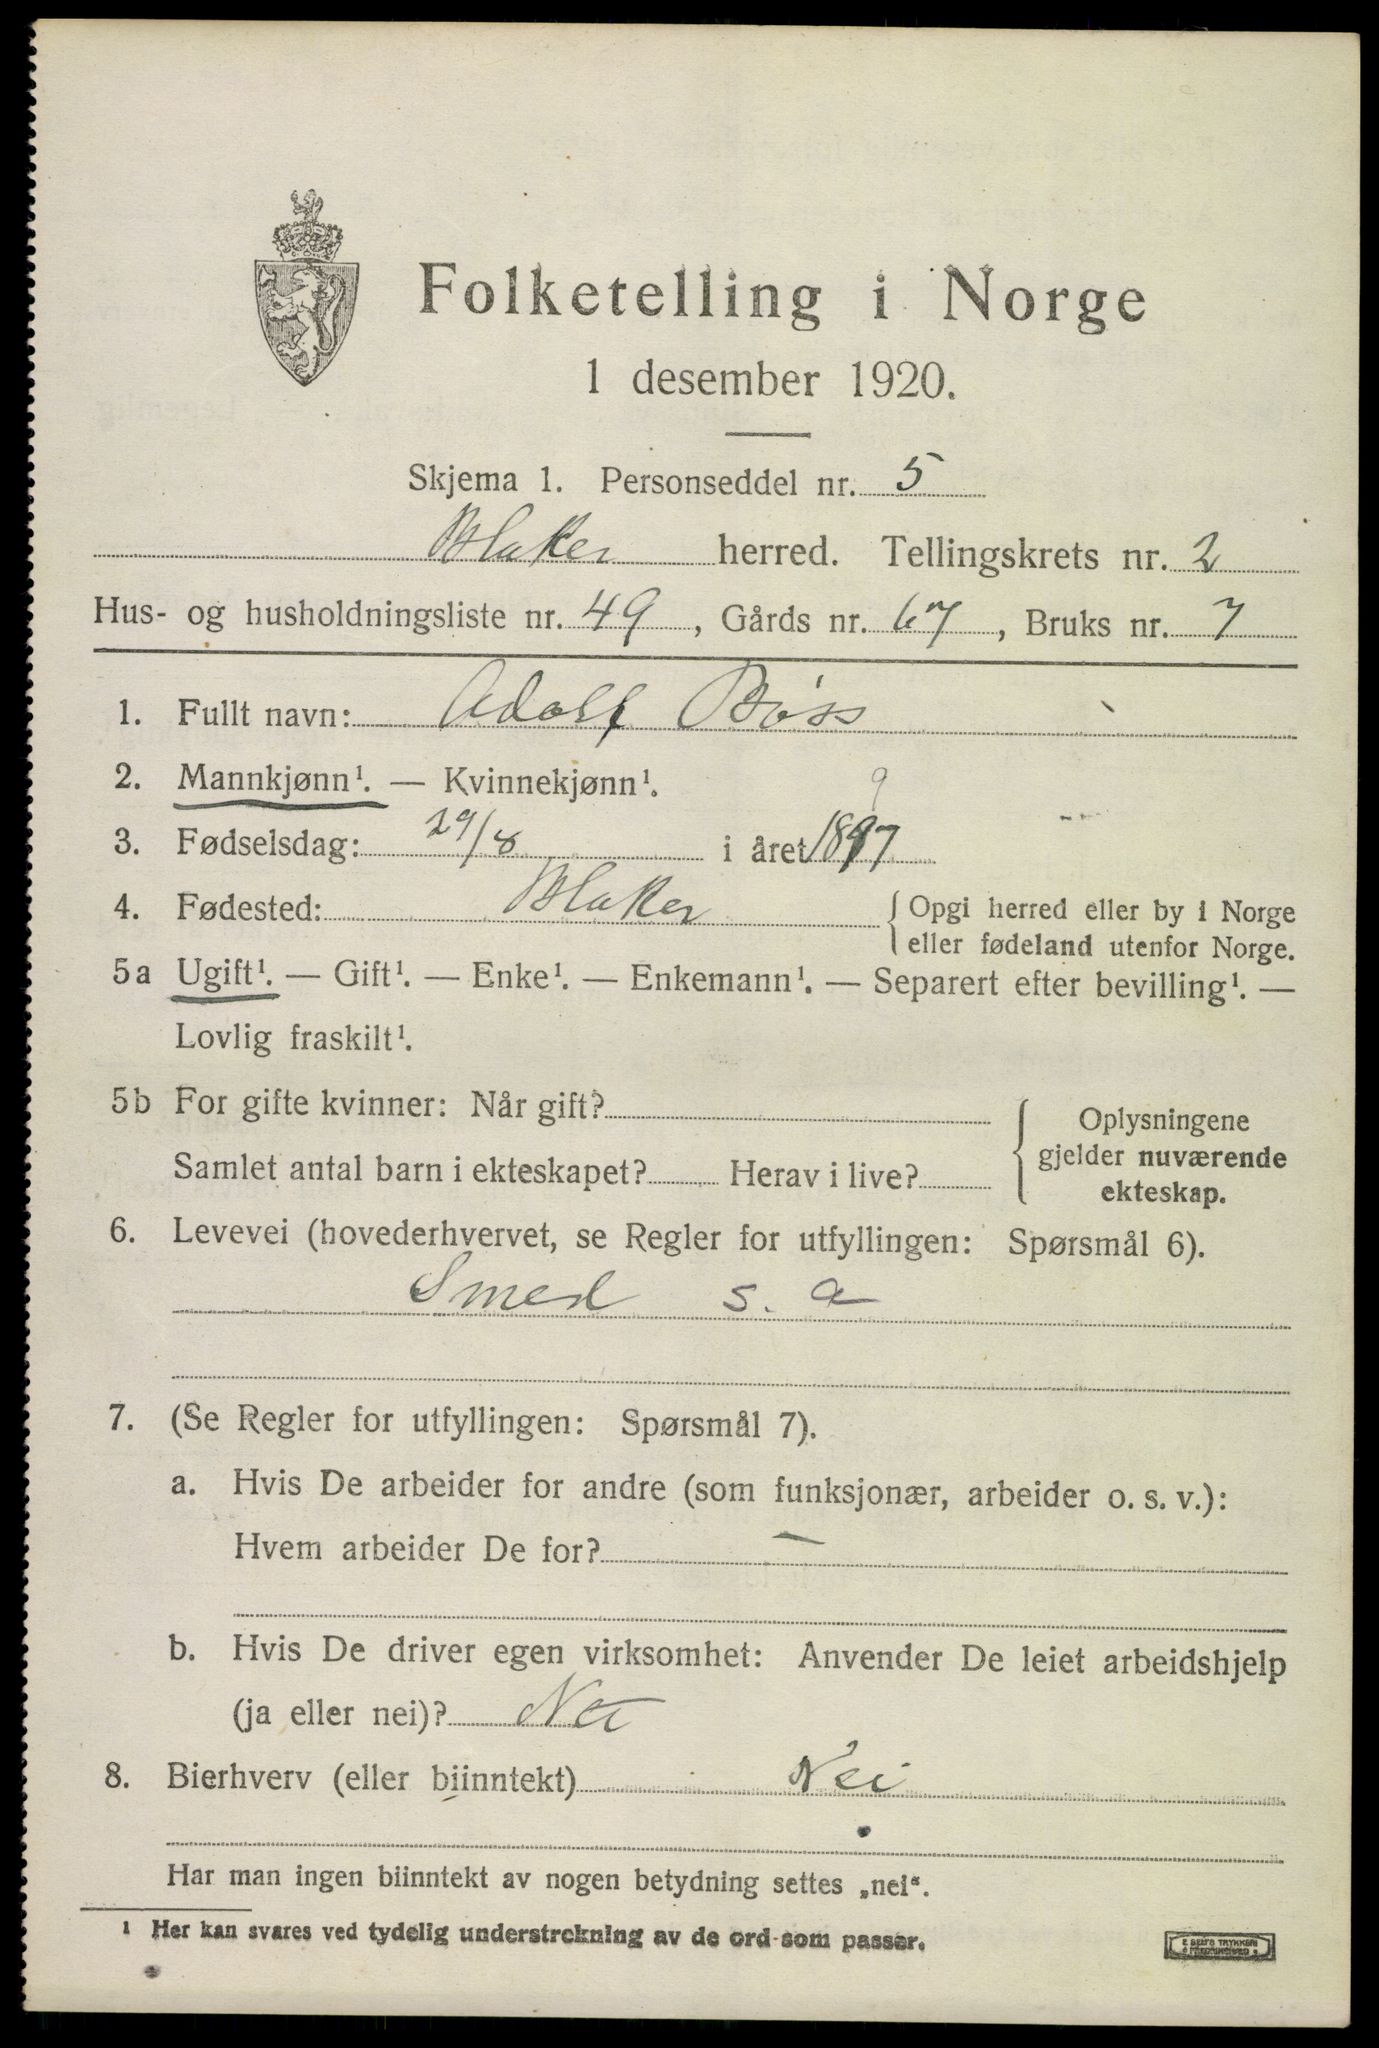 Folketelling i Norge
1 desember 1920.
Skjema 1. Personseddel nr. 5
Blaker herred. Tellingskrets nr. 2
Hus- og husholdningsliste nr. 49, Gårds nr. 67, Bruks nr. 7
1. Fullt navn: Adolf Bøss
2. Mannkjønn¹. — Kvinnekjønn¹.
9
3. Fødselsdag: 29/8 i året 1897
4. Fødested: Blaker { Opgi herred eller by i Norge
eller fødeland utenfor Norge.
5a Ugift¹. — Gift¹. — Enke¹. — Enkemann¹. — Separert efter bevilling¹. —
Lovlig fraskilt¹.
5b For gifte kvinner: Når gift?
Samlet antal barn i ekteskapet? Herav i live?
Oplysningene
gjelder nuværende
ekteskap.
6. Levevei (hovederhvervet, se Regler for utfyllingen: Spørsmål 6).
Smed s. a
7. (Se Regler for utfyllingen: Spørsmål 7).
a. Hvis De arbeider for andre (som funksjonær, arbeider o. s. v.):
Hvem arbeider De for? —
b. Hvis De driver egen virksomhet: Anvender De leiet arbeidshjelp
(ja eller nei)? Nei
8. Bierhverv (eller biinntekt) Nei
Har man ingen biinntekt av nogen betydning settes „nei“.
¹ Her kan svares ved tydelig understrekning av de ord som passer.